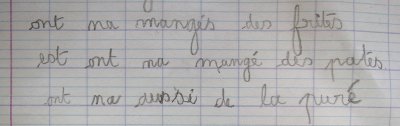 ont ma mangés des frites
est ont ma mangé des pates.
ont ma aussi de la puré